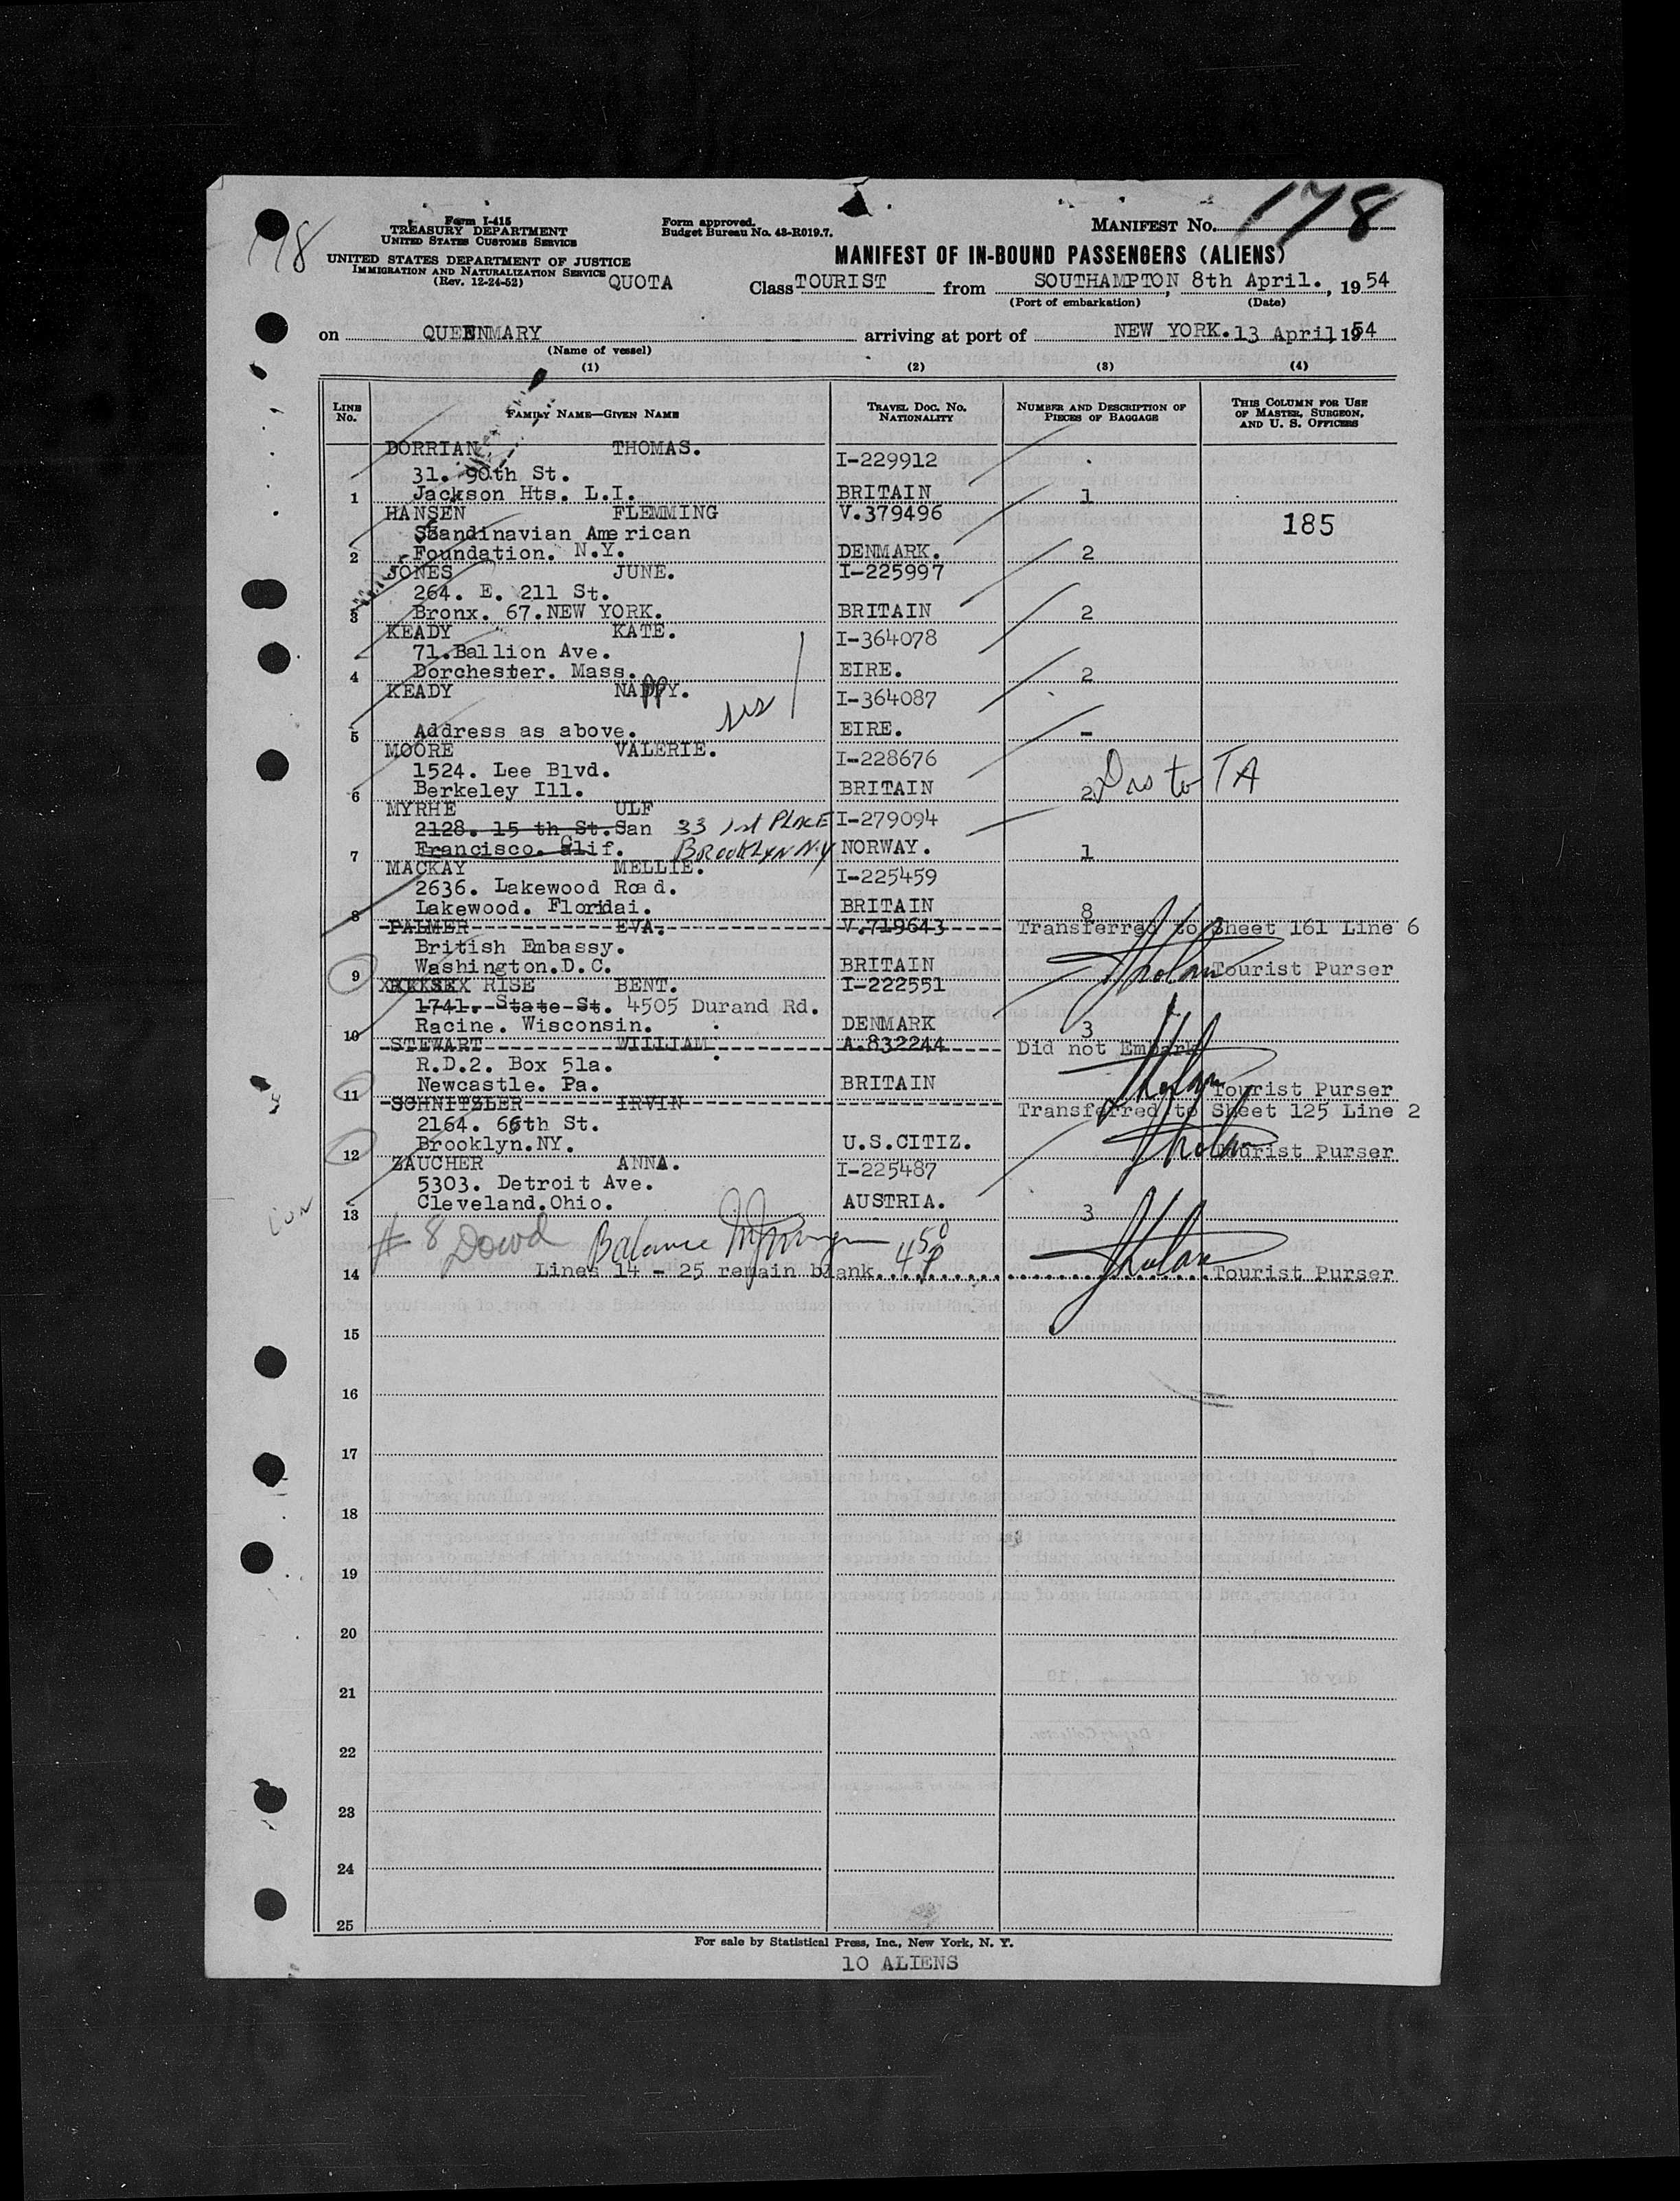 178
Form I-415
TREASURY DEPARTMENT
UNITED STATES CUSTOMS SERVICE
Form approved.
Budget Bureau No. 43-R019.7.
MANIFEST No. 178
UNITED STATES DEPARTMENT OF JUSTICE
IMMIGRATION AND NATURALIZATION SERVICE
(Rev. 12-24-52)
QUOTA
MANIFEST OF IN-BOUND PASSENGERS (ALIENS)
Class TOURIST from SOUTHAMPTON, 8th April., 1954
(Port of embarkation) (Date)
on QUEENMARY arriving at port of NEW YORK. 13 April, 1954
(Name of vessel)
(1) (2) (3) (4)
LINE No. FAMILY NAME—GIVEN NAME TRAVEL DOC. NO. NATIONALITY NUMBER AND DESCRIPTION OF PIECES OF BAGGAGE THIS COLUMN FOR USE OF MASTER, SURGEON, AND U. S. OFFICERS
DORRIAN THOMAS. I-229912
31. 90th St.
1 Jackson Hts. L.I. BRITAIN 1
HANSEN FLEMMING V.379496 185
Scandinavian American
2 Foundation. N.Y. DENMARK. 2
JONES JUNE. I-225997
264. E. 211 St.
3 Bronx. 67.NEW YORK. BRITAIN 2
KEADY KATE. I-364078
71.Ballion Ave.
4 Dorchester. Mass. EIRE. 2
KEADY NAPPY. I-364087
5 Address as above. EIRE. -
MOORE VALERIE. I-228676
1524. Lee Blvd.
6 Berkeley Ill. BRITAIN 2 to TA
MYRHE ULF I-279094
2128. 15 th St.San 33 1st PLACE
7 Francisco. Clif. BROOKLYN N.Y NORWAY. 1
MACKAY MELLIE. I-225459
2636. Lakewood Road.
8 Lakewood. Floridai. BRITAIN 8
PALMER EVA. V.719643 Transferred to Sheet 161 Line 6
British Embassy.
9 Washington.D.C. BRITAIN Tourist Purser
RISE BENT. I-222551
1741. State St. 4505 Durand Rd.
10 Racine. Wisconsin. DENMARK 3
STEWART WILLIAM A.832244 Did not Embark
R.D.2. Box 51a.
11 Newcastle. Pa. BRITAIN Tourist Purser
SCHNITZLER IRVIN Transferred to Sheet 125 Line 2
2164. 66th St.
12 Brooklyn.NY. U.S.CITIZ. Tourist Purser
ZAUCHER ANNA. I-225487
5303. Detroit Ave.
13 Cleveland.Ohio. AUSTRIA. 3
# 8 Dowd Balance
14 Lines 14 - 25 remain blank. Tourist Purser
15
16
17
18
19
20
21
22
23
24
25
For sale by Statistical Press, Inc., New York, N. Y.
10 ALIENS